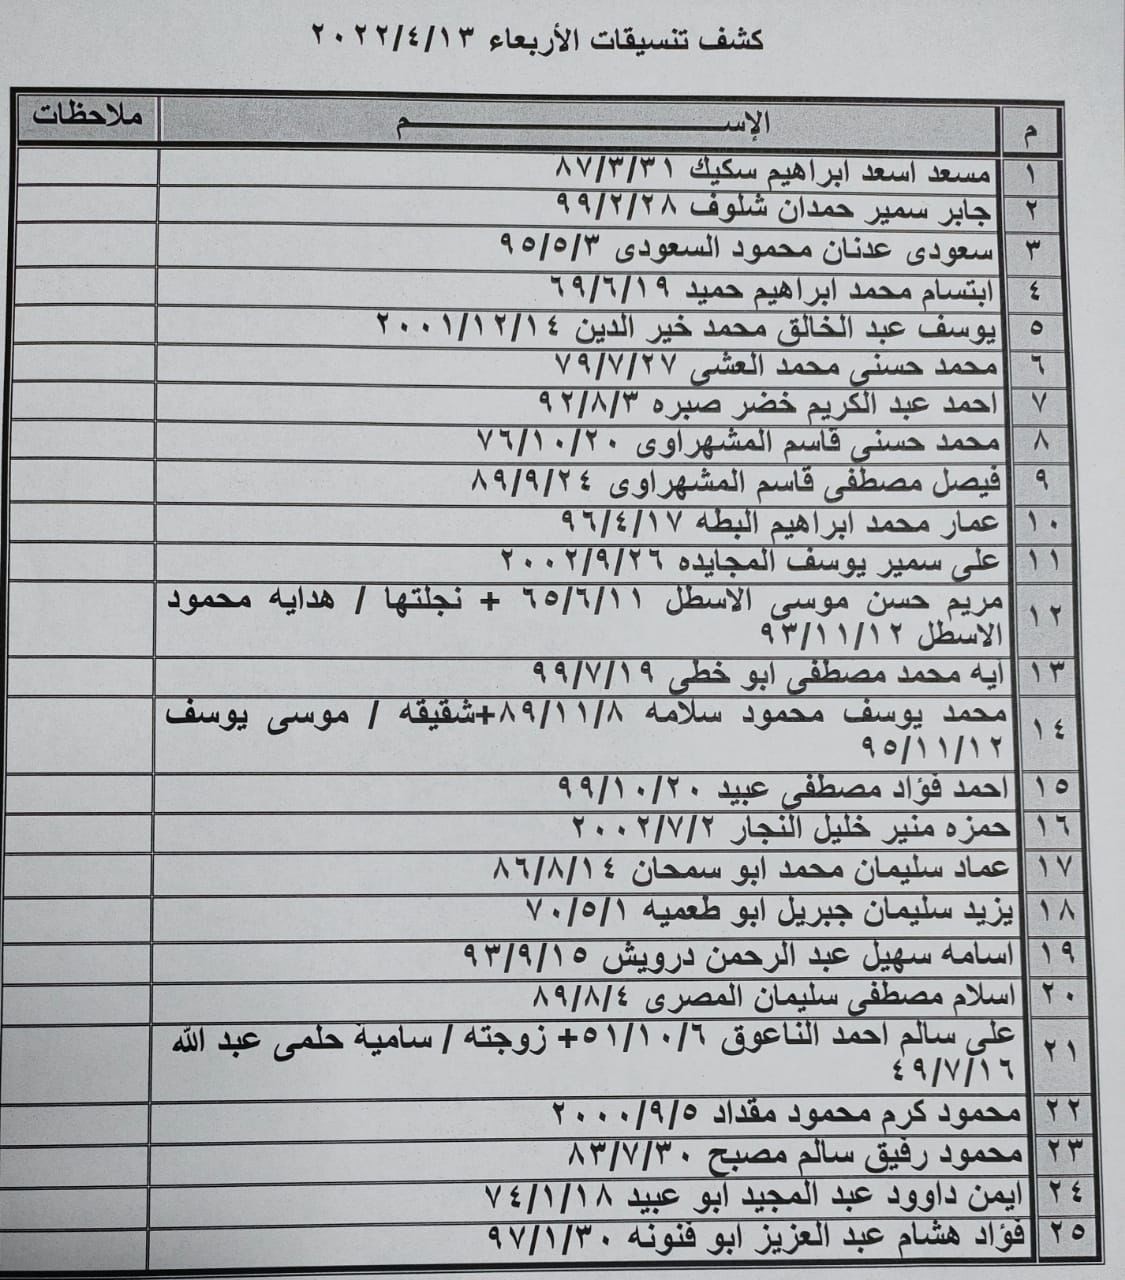 كشف تنسيقات الأربعاء ٢٠٢٢/٤/١٣
م الإســـــــــــــم ملاحظات
١ مسعد اسعد ابراهيم سكيك ٨٧/٣/٣١
٢ جابر سمير حمدان شلوف ٩٩/٢/٢٨
٣ سعودى عدنان محمود السعودى ٩٥/٥/٣
٤ ابتسام محمد ابراهيم حميد ٦٩/٦/١٩
٥ يوسف عبد الخالق محمد خير الدين ٢٠٠١/١٢/١٤
٦ محمد حسنى محمد العشى ٧٩/٧/٢٧
٧ احمد عبد الكريم خضر صبره ٩٢/٨/٣
٨ محمد حسنى قاسم المشهراوى ٧٦/١٠/٢٠
٩ فيصل مصطفى قاسم المشهراوى ٨٩/٩/٢٤
١٠ عمار محمد ابراهيم البطه ٩٦/٤/١٧
١١ على سمير يوسف المجايده ٢٠٠٢/٩/٢٦
١٢ مريم حسن موسى الاسطل ٦٥/٦/١١ + نجلتها / هدايه محمود
الاسطل ٩٣/١١/١٢
١٣ ايه محمد مصطفى ابو خطى ٩٩/٧/١٩
١٤ محمد يوسف محمود سلامه ٨٩/١١/٨+شقيقه / موسى يوسف
٩٥/١١/١٢
١٥ احمد فؤاد مصطفى عبيد ٩٩/١٠/٢٠
١٦ حمزه منير خليل النجار ٢٠٠٢/٧/٢
١٧ عماد سليمان محمد ابو سمحان ٨٦/٨/١٤
١٨ يزيد سليمان جبريل ابو طعميه ٧٠/٥/١
١٩ اسامه سهيل عبد الرحمن درويش ٩٣/٩/١٥
٢٠ اسلام مصطفى سليمان المصرى ٨٩/٨/٤
٢١ على سالم احمد الناعوق ٥١/١٠/٦+ زوجته / سامية حلمى عبد الله
٤٩/٧/١٦
٢٢ محمود كرم محمود مقداد ٢٠٠٠/٩/٥
٢٣ محمود رفيق سالم مصبح ٨٣/٧/٣٠
٢٤ ايمن داوود عبد المجيد ابو عبيد ٧٤/١/١٨
٢٥ فؤاد هشام عبد العزيز ابو فنونه ٩٧/١/٣٠